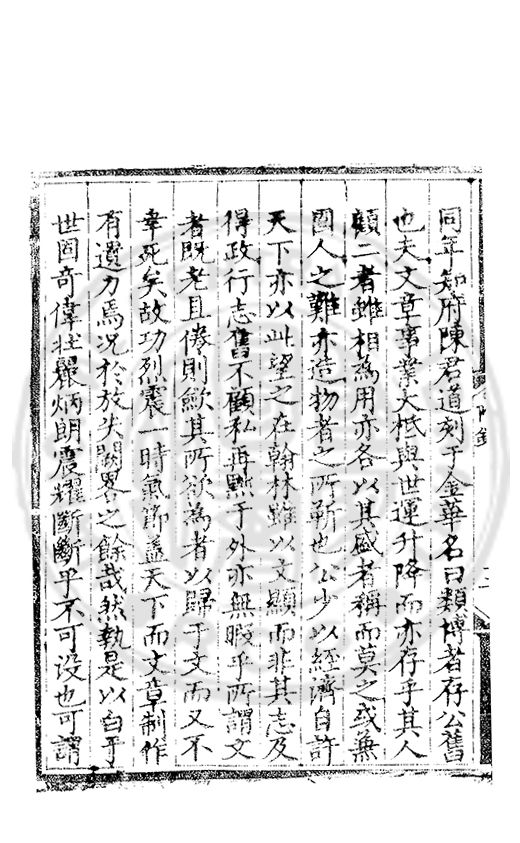 同年知府陳君道刻于金華名曰類博者存公舊
也夫文章事業大抵與世運升降而亦存乎其人
顧二者雖相為用亦各以其盛者稱而莫之或兼
國人之難亦造物者之所靳也公少以經濟自許
天下亦以此望之在翰林雖以文顯而非其志及
得政行志舊不顧私再黜于外亦無暇乎所謂文
者既老且倦則歛其所欲為者以歸于文而又不
幸死矣故功烈震一時氣節蓋天下而文章制作
有遺力焉况於放失闕畧之餘哉然執是以白乎
世固奇偉壯麗炳朗震耀斷斷乎不可没也可謂